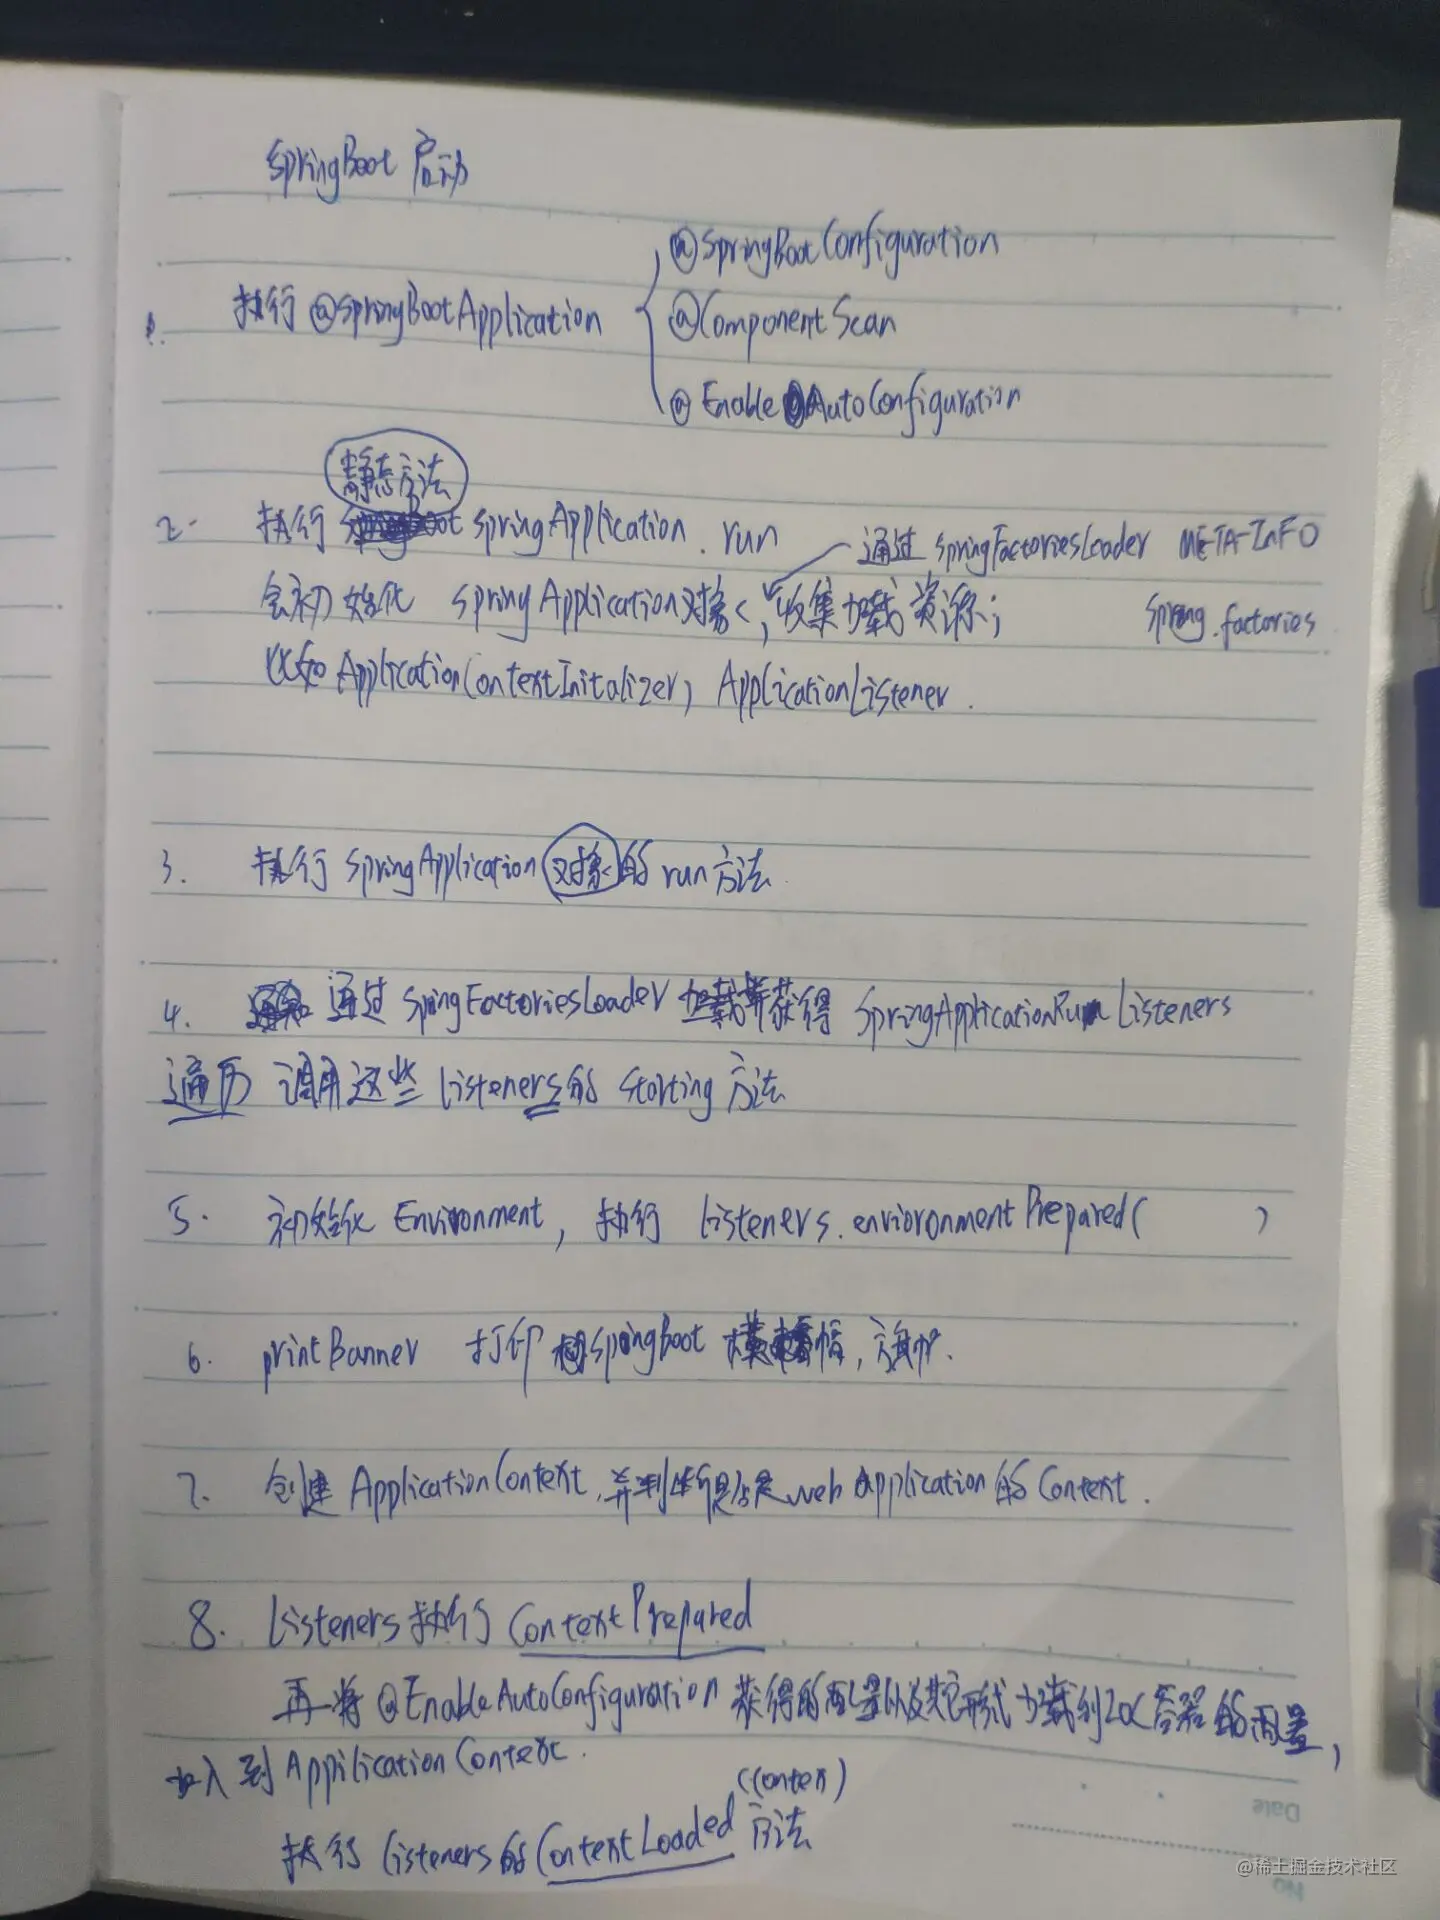 SpringBoot 启动
@SpringBootConfiguration
1. 执行 @SpringBootApplication
@ComponentScan
@EnableAutoConfiguration
静态方法
2. 执行 SpringApplication.run
通过 SpringFactoriesLoader META-INFO
会初始化 SpringApplication对象,收集加载资源;
Spring.factories
比如 ApplicationContextInitalizer, ApplicationListener.
3. 执行 SpringApplication 对象的 run 方法.
4. 通过 SpringFactoriesLoader 加载并获得 SpringApplicationRunListeners
遍历 调用这些 Listeners的 starting 方法
5. 初始化 Environment, 执行 Listeners.envioronmentPrepared( )
6. printBanner 打印 SpringBoot 横幅, 旗帜.
7. 创建 ApplicationContext,并判断是否是web Application的 Context.
8. Listeners 执行 ContextPrepared
再将 @EnableAutoConfiguration 获得的配置以及其它形式加载到IOC容器的配置,
加入到 AppilicationContext.
(Contex)
执行 Listeners的 ContextLoaded 方法
Date
No
@稀土掘金技术社区